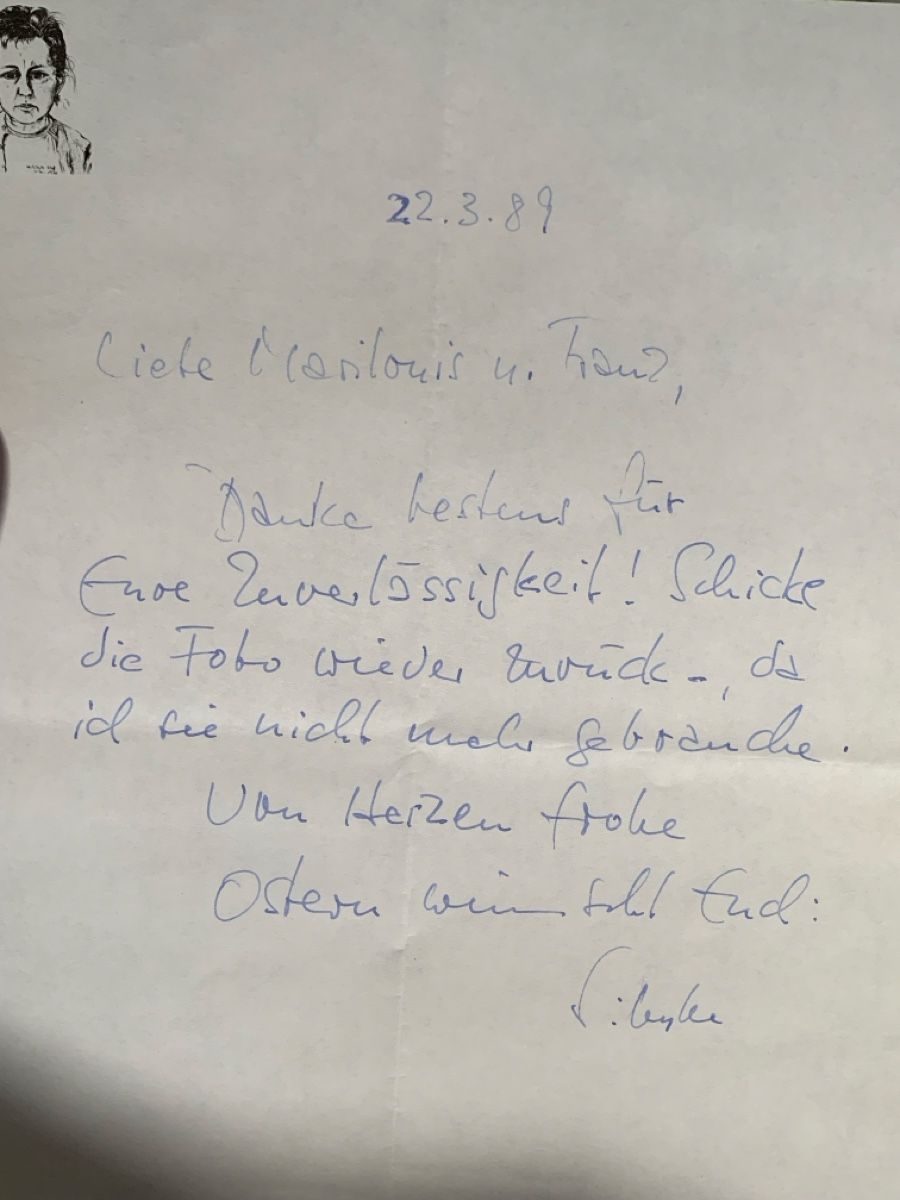 22.3.89
Liebe Marilouis u. Franz,
Danke bestens für
Eure Zuverlässigkeit! Schicke
die Foto wieder zurück -, da
ich sie nicht mehr gebrauche.
Von Herzen frohe
Ostern wünscht Euch: